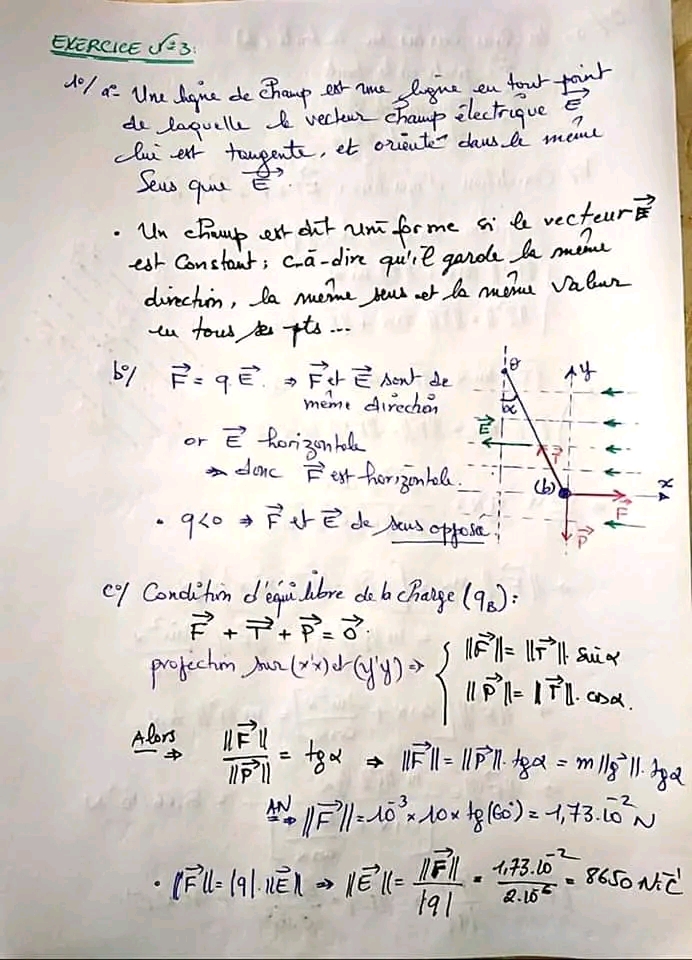 EXERCICE N°3:
1°/ a°- Une ligne de champ est une ligne en tout point
de laquelle le vecteur champ électrique E⃗
lui est tangente, et orienté dans le même
Sens que E⃗.
• Un champ est dit uniforme si le vecteur E⃗
est Constant; c-à-dire qu'il garde la même
direction, la même sens et la même valeur
en tous ses pts...
b°/ F⃗ = q.E⃗ ⇒ F⃗ et E⃗ sont de
même direction
or E⃗ horizontale
⇒ donc F⃗ est horizontale.
• q<0 ⇒ F⃗ et E⃗ de sens opposé.
θ
α
y
E⃗
T⃗
(b)
x
F⃗
P⃗
c°/ Condition d'équilibre de la charge (qB):
F⃗ + T⃗ + P⃗ = 0⃗.
projection sur (x'x) et (y'y) ⇒ { ||F⃗|| = ||T⃗||. sin α
||P⃗|| = ||T⃗||. cos α.
Alors ⇒ ||F⃗|| / ||P⃗|| = tg α ⇒ ||F⃗|| = ||P⃗||. tg α = m ||g⃗||. tg α
AN ⇒ ||F⃗|| = 10⁻³ × 10 × tg(60°) = 1,73.10⁻² N
• ||F⃗|| = |q|.||E⃗|| ⇒ ||E⃗|| = ||F⃗|| / |q| = 1,73.10⁻² / 2.10⁻⁶ = 8650 N.C⁻¹